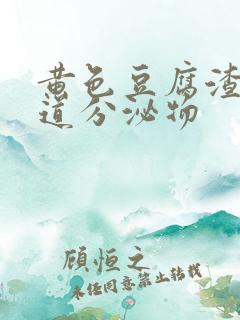 黄色豆腐渣
道分泌物
顾恒之
未经同意禁止转载